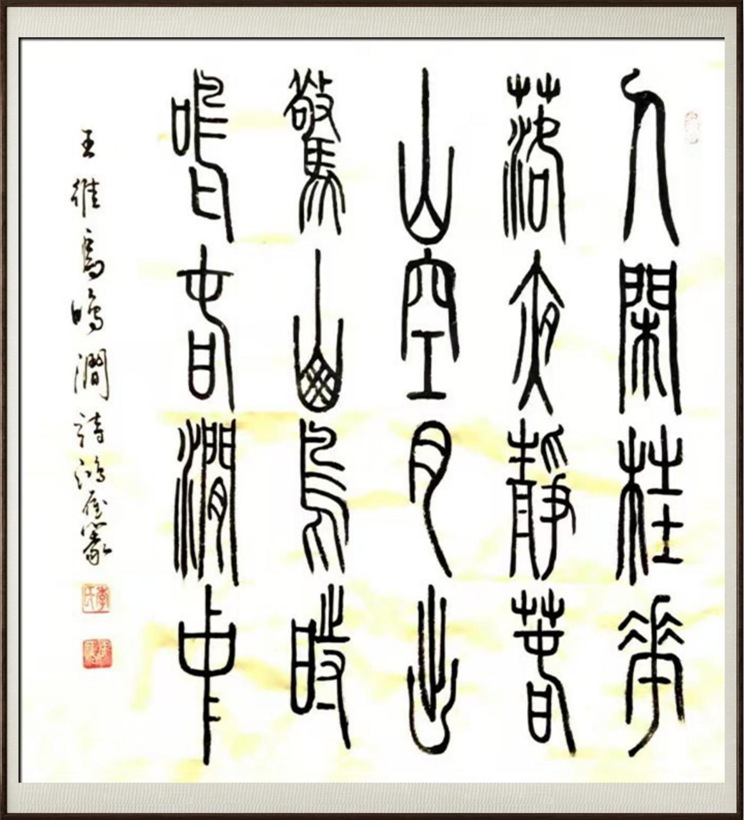 人閑桂花
落夜靜春
山空月出
驚山鳥時
鳴春澗中
王維鳥鳴澗詩鴻雁篆
李氏